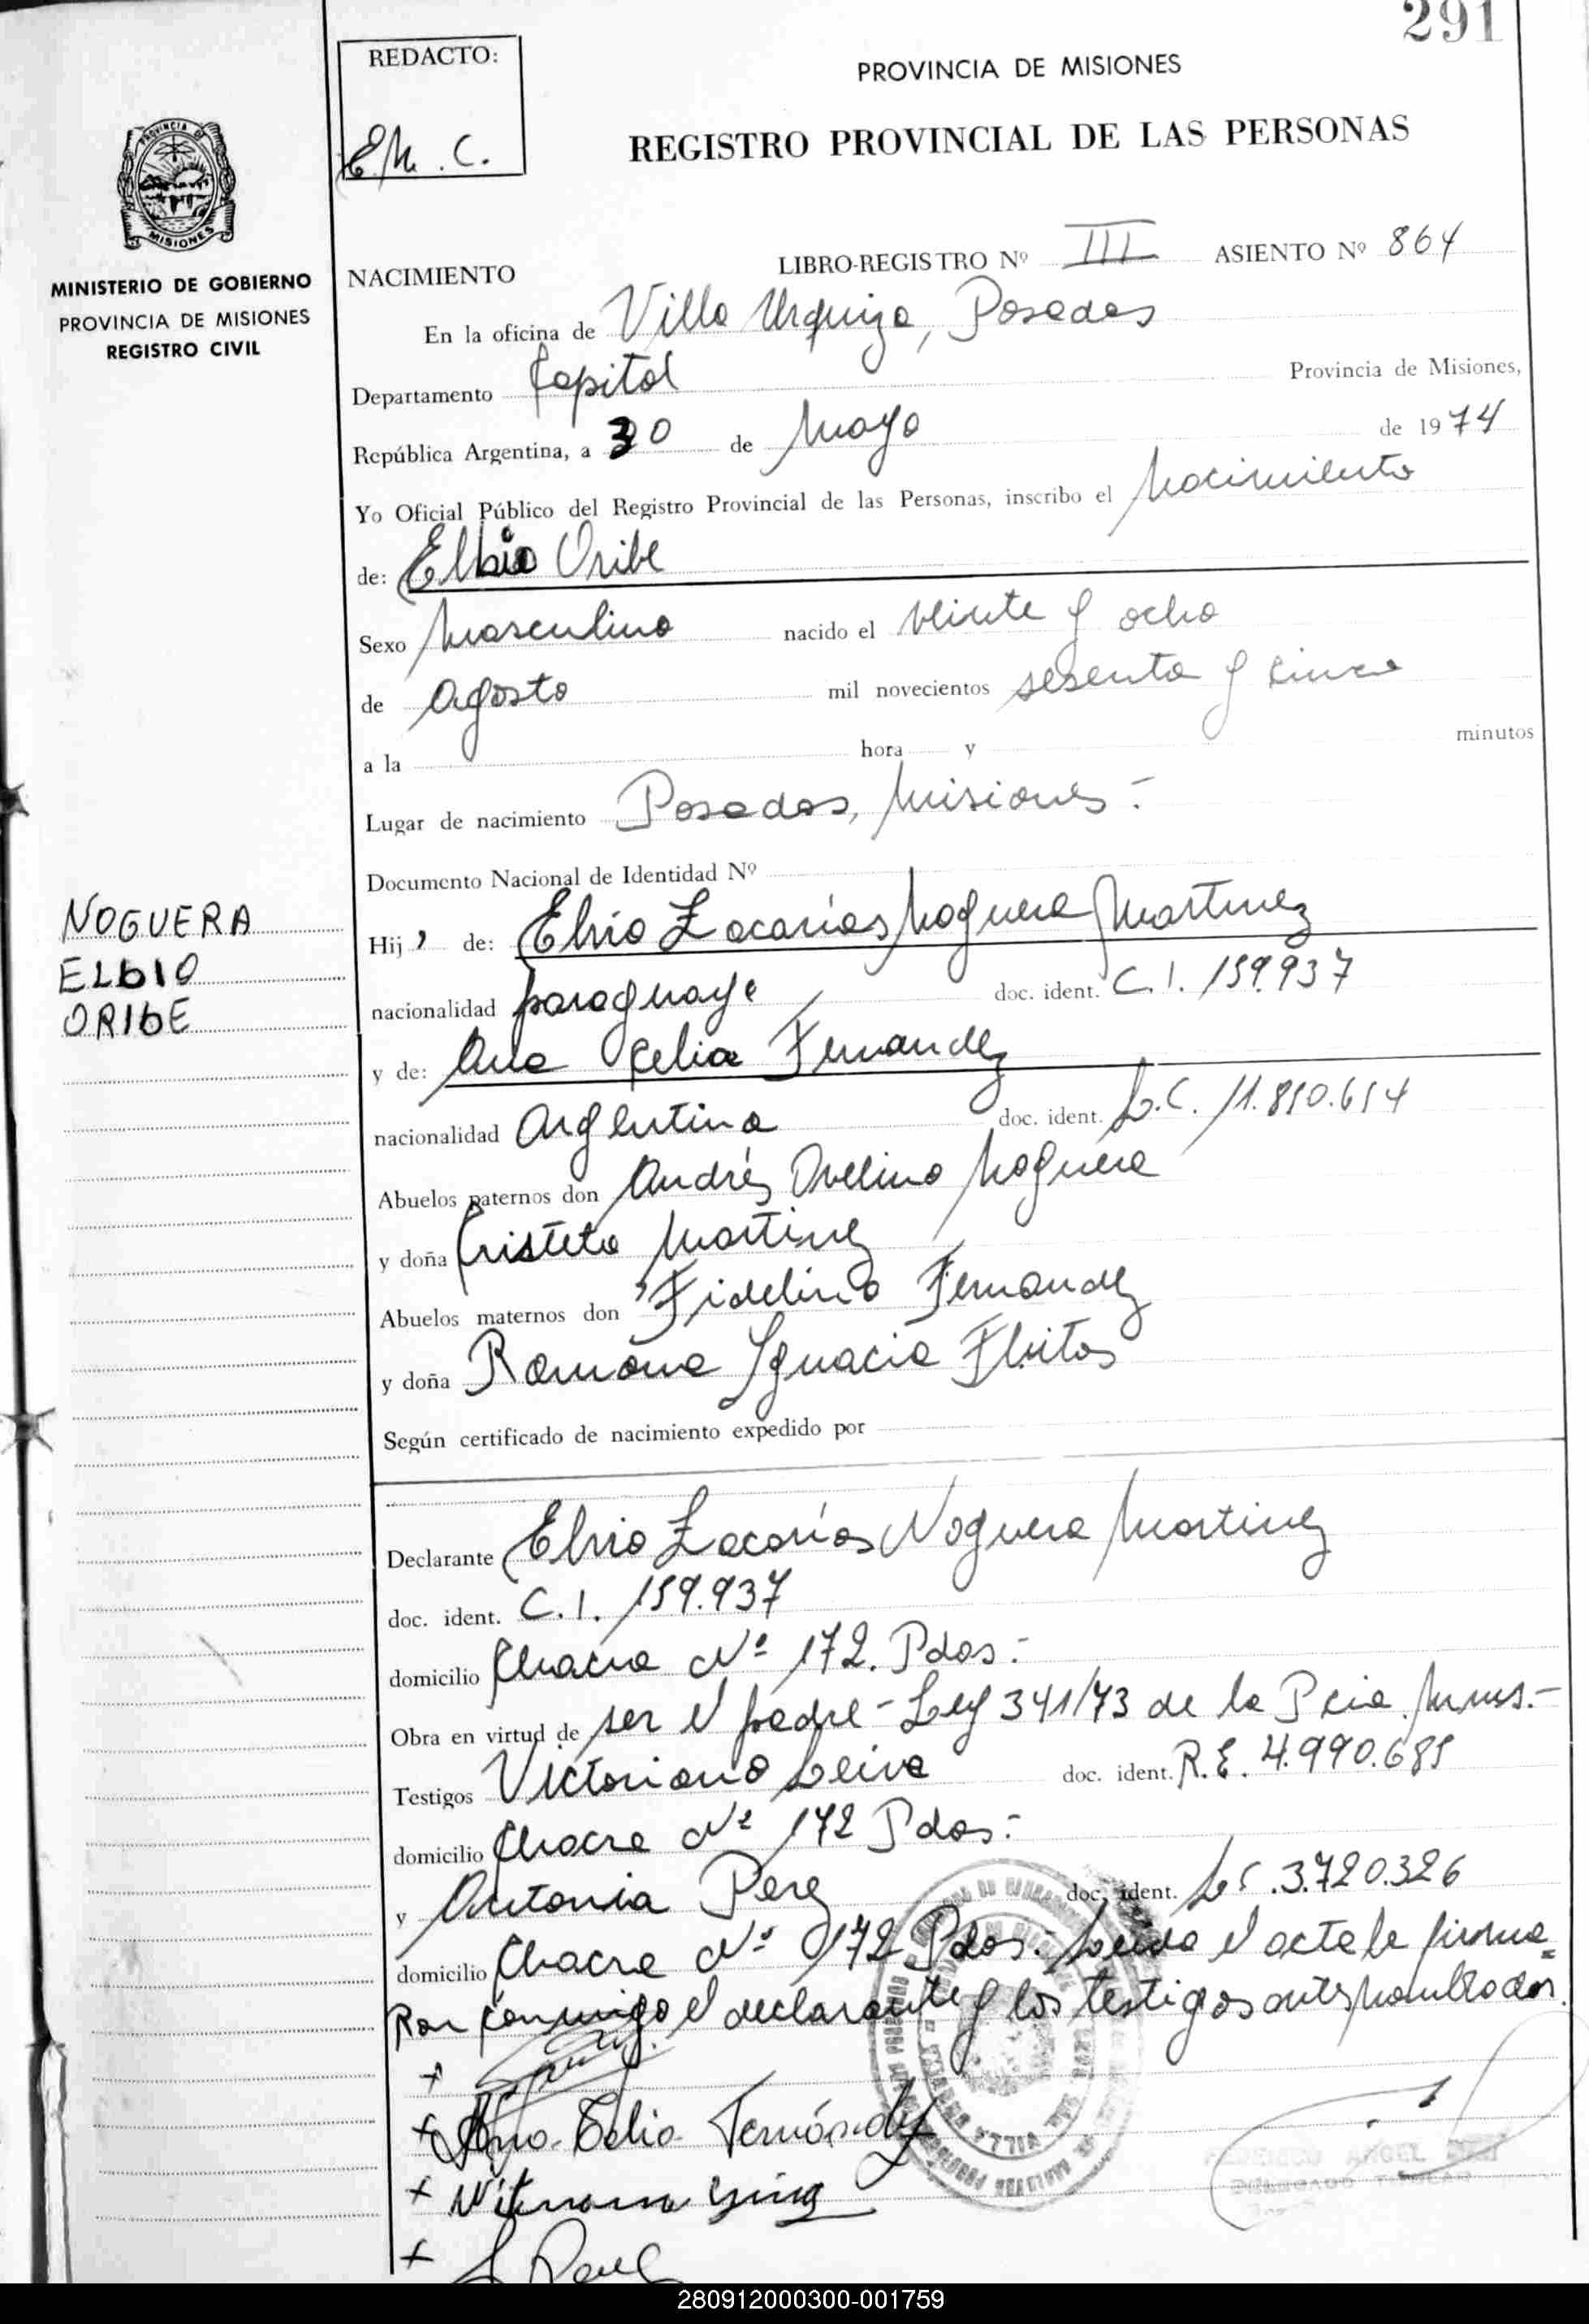 291
REDACTO:
E.M.C.
PROVINCIA DE MISIONES
REGISTRO PROVINCIAL DE LAS PERSONAS
PROVINCIA DE MISIONES
MINISTERIO DE GOBIERNO
PROVINCIA DE MISIONES
REGISTRO CIVIL
NACIMIENTO LIBRO-REGISTRO Nº III ASIENTO Nº 864
En la oficina de Villa Urquiza, Posadas
Departamento Capital Provincia de Misiones,
República Argentina, a 30 de Mayo de 1974
Yo Oficial Público del Registro Provincial de las Personas, inscribo el Nacimiento
de: Elbio Oribe
Sexo Masculino nacido el veinte y ocho
de Agosto mil novecientos sesenta y cinco
a la hora y minutos
Lugar de nacimiento Posadas, Misiones.-
Documento Nacional de Identidad Nº
NOGUERA
ELbIO
ORIbE
Hijo de: Elvio Zacarías Noguera Martinez
nacionalidad paraguaya doc. ident. C.I. 159.937
y de: Ana Celia Fernandez
nacionalidad Argentina doc. ident. L.C. 11.810.614
Abuelos paternos don Andrés Avelino Noguera
y doña Cristeta Martinez
Abuelos maternos don Fidelino Fernandez
y doña Ramona Ignacia Fleitas
Según certificado de nacimiento expedido por
Declarante Elvio Zacarías Noguera Martinez
doc. ident. C.I. 159.937
domicilio Chacra Nº 172. Pdas.-
Obra en virtud de ser el padre - Ley 341/73 de la Pcia. Mnes.-
Testigos Victoriano Leiva doc. ident. R.E. 4.990.685
domicilio Chacra Nº 172 Pdas.-
y Antonia Perez doc. ident. LC.3.720.326
domicilio Chacra Nº 172 Pdas. Leida el acta la firma=
Ron conmigo el declarante y los testigos antes nombrados.
+
+ Ana Celia Fernández
+
+
VILLA URQUIZA
ANGEL
280912000300-001759